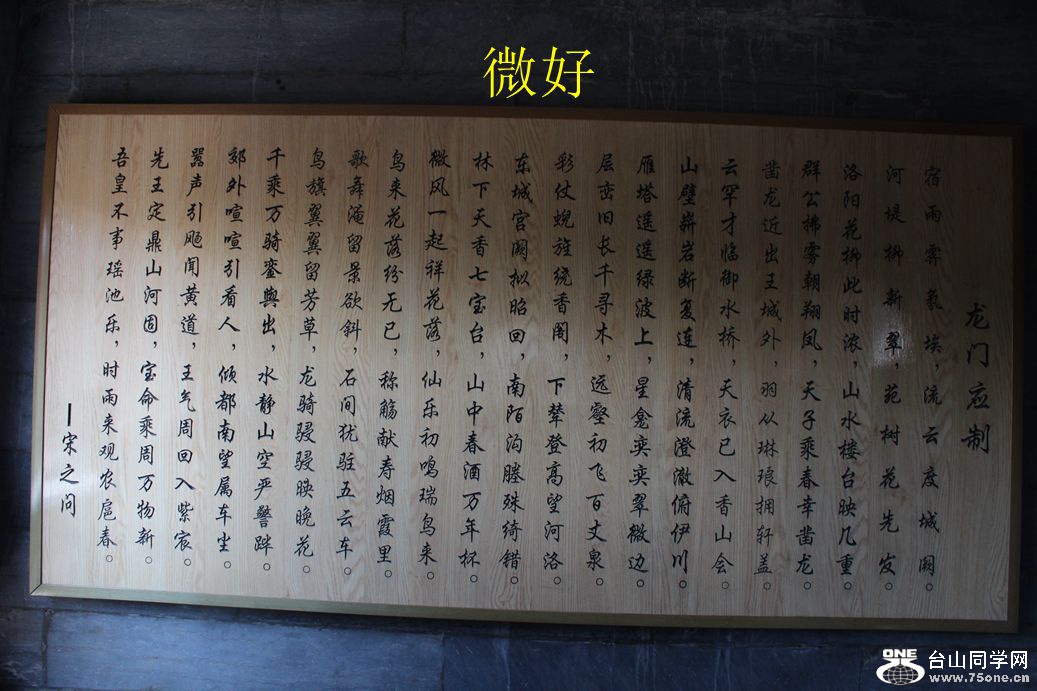 微好
龙门应制
宿雨霁氛埃，流云度城阙。
河堤柳新翠，苑树花先发。
洛阳花柳此时浓，山水楼台映几重。
群公拂雾朝翔凤，天子乘春幸凿龙。
凿龙近出王城外，羽从琳琅拥轩盖。
云罕才临御水桥，天衣已入香山会。
山壁崭岩断复连，清流澄澈俯伊川。
雁塔遥遥绿波上，星龛奕奕翠微边。
层峦旧长千寻木，远壑初飞百丈泉。
彩仗蜺旌绕香阁，下辇登高望河洛。
东城宫阙拟昭回，南陌沟塍殊绮错。
林下天香七宝台，山中春酒万年杯。
微风一起祥花落，仙乐初鸣瑞鸟来。
鸟来花落纷无已，称觞献寿烟霞里。
歌舞淹留景欲斜，石间犹驻五云车。
鸟旗翼翼留芳草，龙骑骎骎映晚花。
千乘万骑銮舆出，水静山空严警跸。
郊外喧喧引看人，倾都南望属车尘。
嚣声引飏闻黄道，王气周回入紫宸。
先王定鼎山河固，宝命乘周万物新。
吾皇不事瑶池乐，时雨来观农扈春。
—宋之问
ONE
台山同学网
www.75one.cn